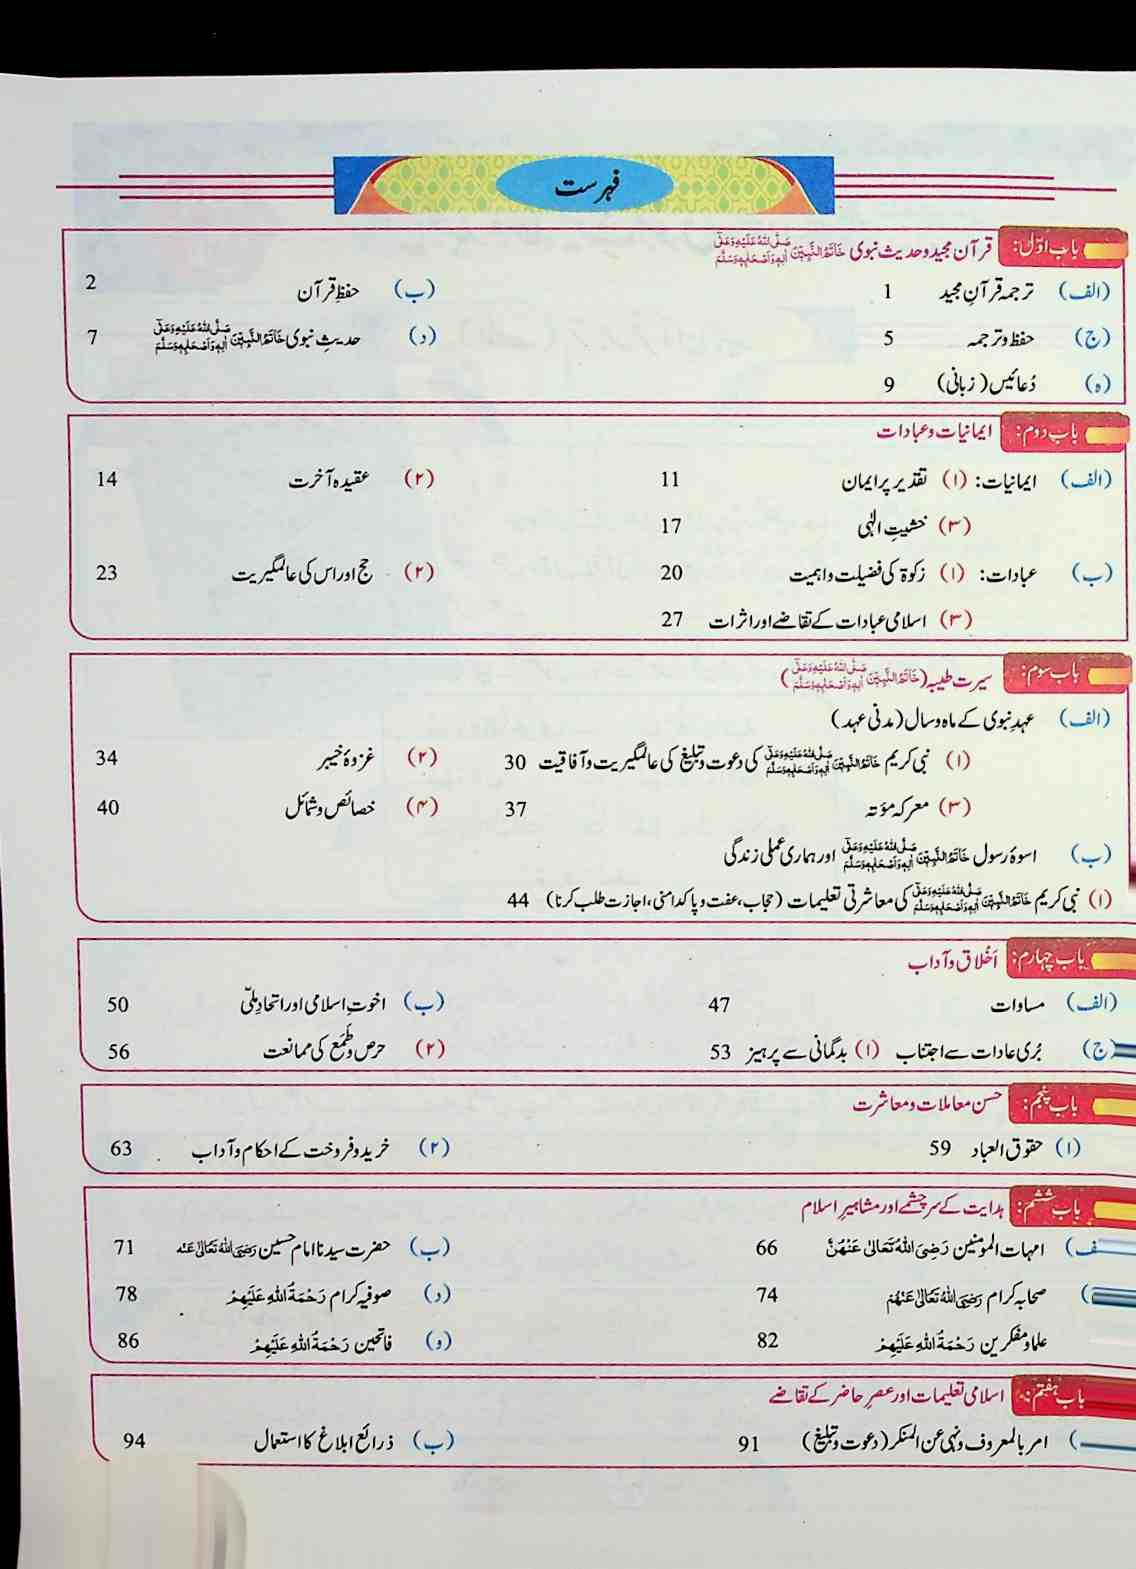 فہرست
باب اوّل: قرآن مجید و حدیث نبوی خَاتَمُ النَّبِیّٖنَ صَلَّی اللہُ عَلَیْہِ وَعَلٰٓی اٰلِہٖ وَاَصْحَابِہٖ وَسَلَّمَ
(الف) ترجمہ قرآنِ مجید 1 (ب) حفظِ قرآن 2
(ج) حفظ و ترجمہ 5 (د) حدیثِ نبوی خَاتَمُ النَّبِیّٖنَ صَلَّی اللہُ عَلَیْہِ وَعَلٰٓی اٰلِہٖ وَاَصْحَابِہٖ وَسَلَّمَ 7
(ہ) دُعائیں (زبانی) 9
باب دوم: ایمانیات و عبادات
(الف) ایمانیات: (۱) تقدیر پر ایمان 11 (۲) عقیدہ آخرت 14
(۳) خشیتِ الٰہی 17
(ب) عبادات: (۱) زکوۃ کی فضیلت و اہمیت 20 (۲) حج اور اس کی عالمگیریت 23
(۳) اسلامی عبادات کے تقاضے اور اثرات 27
باب سوم: سیرت طیبہ (خَاتَمُ النَّبِیّٖنَ صَلَّی اللہُ عَلَیْہِ وَعَلٰٓی اٰلِہٖ وَاَصْحَابِہٖ وَسَلَّمَ)
(الف) عہدِ نبوی کے ماہ و سال (مدنی عہد)
(۱) نبی کریم خَاتَمُ النَّبِیّٖنَ صَلَّی اللہُ عَلَیْہِ وَعَلٰٓی اٰلِہٖ وَاَصْحَابِہٖ وَسَلَّمَ کی دعوت و تبلیغ کی عالمگیریت و آفاقیت 30 (۲) غزوۂ خیبر 34
(۳) معرکہ مؤتہ 37 (۴) خصائص و شمائل 40
(ب) اسوۂ رسول خَاتَمُ النَّبِیّٖنَ صَلَّی اللہُ عَلَیْہِ وَعَلٰٓی اٰلِہٖ وَاَصْحَابِہٖ وَسَلَّمَ اور ہماری عملی زندگی
(۱) نبی کریم خَاتَمُ النَّبِیّٖنَ صَلَّی اللہُ عَلَیْہِ وَعَلٰٓی اٰلِہٖ وَاَصْحَابِہٖ وَسَلَّمَ کی معاشرتی تعلیمات (حجاب، عفت و پاکدامنی، اجازت طلب کرنا) 44
باب چہارم: اَخْلاق و آداب
(الف) مساوات 47 (ب) اخوتِ اسلامی اور اتحادِ ملّی 50
(ج) بُری عادات سے اجتناب (۱) بدگمانی سے پرہیز 53 (۲) حرص و طَمَع کی ممانعت 56
باب پنجم: حسن معاملات و معاشرت
(۱) حقوق العباد 59 (۲) خرید و فروخت کے احکام و آداب 63
باب ششم: ہدایت کے سرچشمے اور مشاہیرِ اسلام
ف) امہات المومنین رَضِیَ اللہُ تَعَالٰی عَنْہُنَّ 66 (ب) حضرت سیدنا امام حسین رَضِیَ اللہُ تَعَالٰی عَنْہ 71
) صحابہ کرام رَضِیَ اللہُ تَعَالٰی عَنْہُمْ 74 (د) صوفیہ کرام رَحْمَۃُ اللہِ عَلَیْہِمْ 78
علما و مفکرین رَحْمَۃُ اللہِ عَلَیْہِمْ 82 (و) فاتحین رَحْمَۃُ اللہِ عَلَیْہِمْ 86
باب ہفتم: اسلامی تعلیمات اور عصرِ حاضر کے تقاضے
) امر بالمعروف و نہی عن المنکر (دعوت و تبلیغ) 91 (ب) ذرائع ابلاغ کا استعمال 94